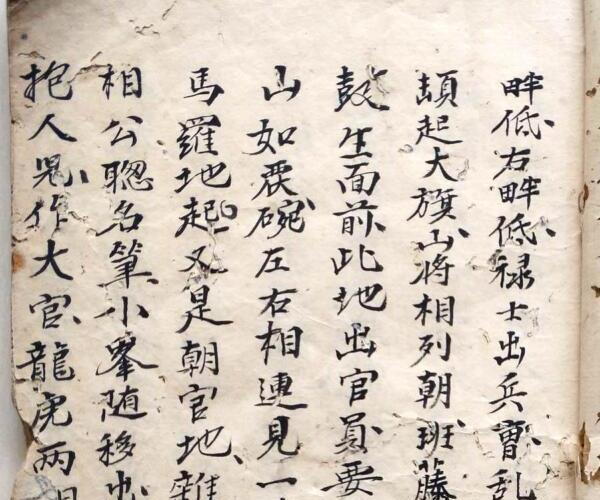 畔低右畔低禄士出兵曹乱
起大旗山将相列朝班藤
鼓生面前此地出官員要
山如覆碗左右相連見一
馬羅地起又是朝官地雜
相公聦名筆小峯随移出
抱人児作大官龍虎两